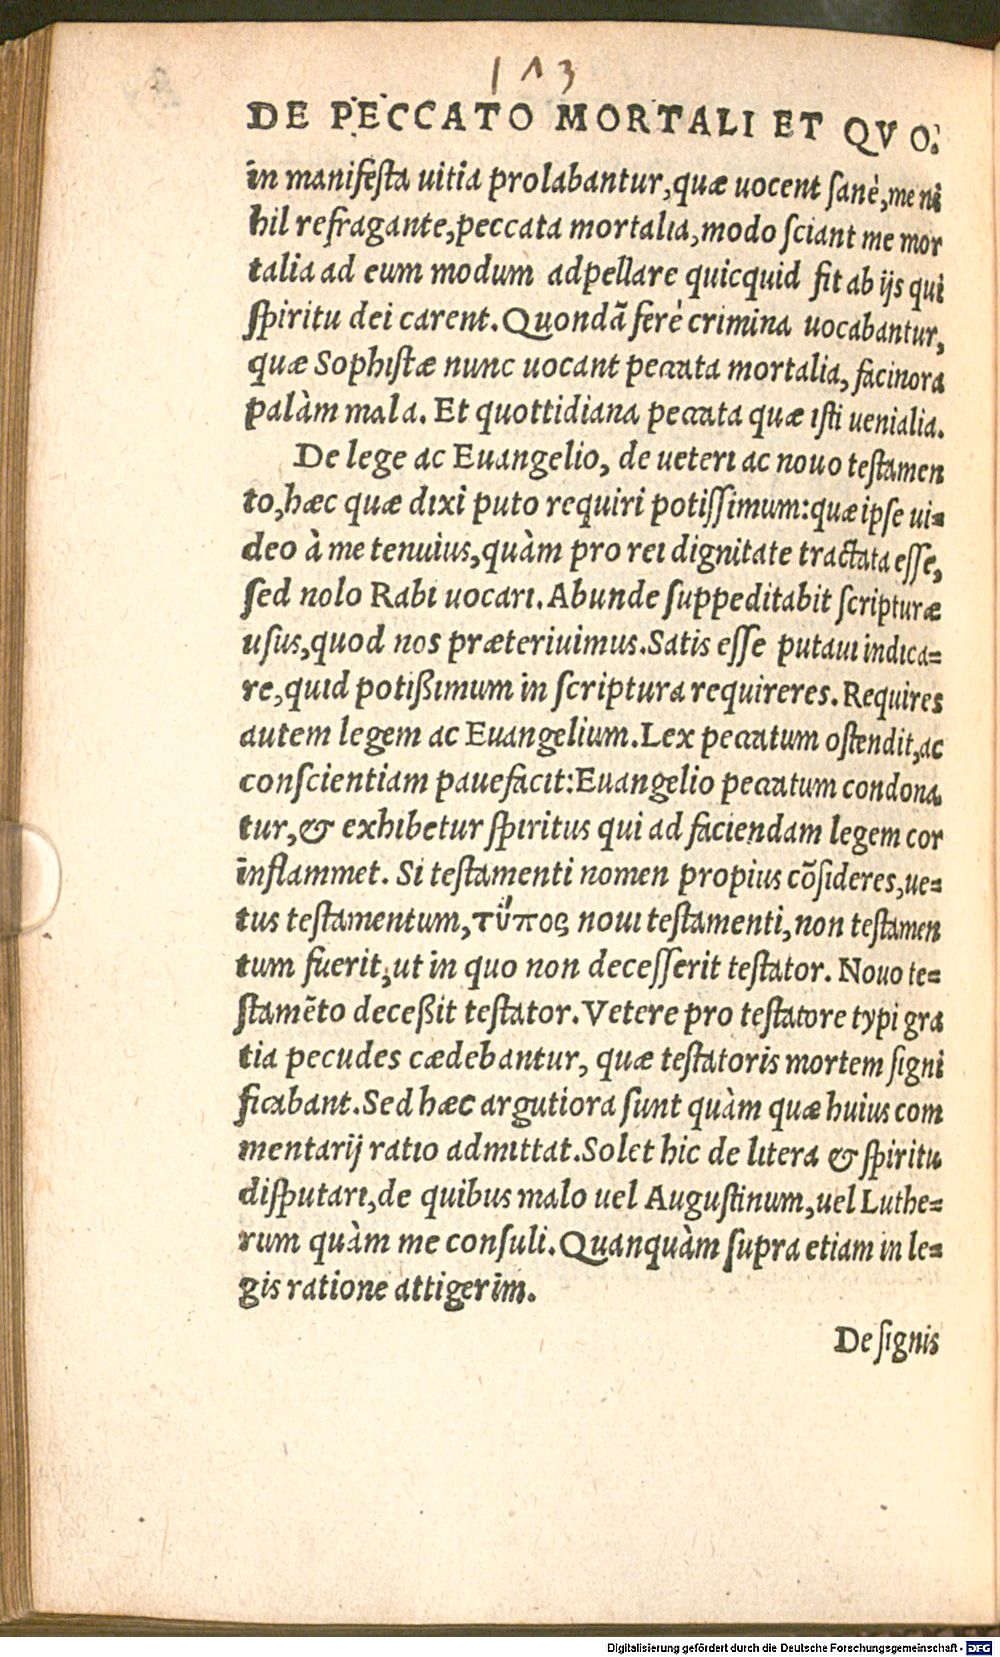 113
DE PECCATO MORTALI ET QVO.
in manifeſta uitia prolabantur,quæ uocent ſanè,me ni
hil refragante,peccata mortalia,modo ſciant me mor
talia ad eum modum adpellare quicquid fit ab ijs qui
ſpiritu dei carent.Quondã ferè crimina uocabantur,
quæ Sophiſtæ nunc uocant peccata mortalia, facinora
palàm mala. Et quottidiana peccata quæ iſti uenialia.
De lege ac Euangelio, de ueteri ac nouo teſtamen
to,hæc quæ dixi puto requiri potiſſimum:quæ ipſe ui=
deo à me tenuius,quàm pro rei dignitate tractata eſſe,
ſed nolo Rabi uocari.Abunde ſuppeditabit ſcripturæ
uſus,quod nos præteriuimus.Satis eſſe putaui indica=
re,quid potißimum in ſcriptura requireres.Requires
autem legem ac Euangelium.Lex peccatum oſtendit,ac
conſcientiam pauefacit:Euangelio peccatum condona
tur,& exhibetur ſpiritus qui ad faciendam legem cor
inflammet. Si teſtamenti nomen propius cõſideres,ue=
tus teſtamentum,τύπος noui teſtamenti,non teſtamen
tum fuerit,ut in quo non deceſſerit teſtator. Nouo te=
ſtamẽto deceßit teſtator.Vetere pro teſtatore typi gra
tia pecudes cædebantur, quæ teſtatoris mortem ſigni
ficabant.Sed hæc argutiora ſunt quàm quæ huius com
mentarij ratio admittat.Solet hic de litera & ſpiritu
diſputari,de quibus malo uel Auguſtinum,uel Luthe=
rum quàm me conſuli.Quanquàm ſupra etiam in le=
gis ratione attigerim.
De ſignis
Digitalisierung gefördert durch die Deutsche Forschungsgemeinschaft - DFG